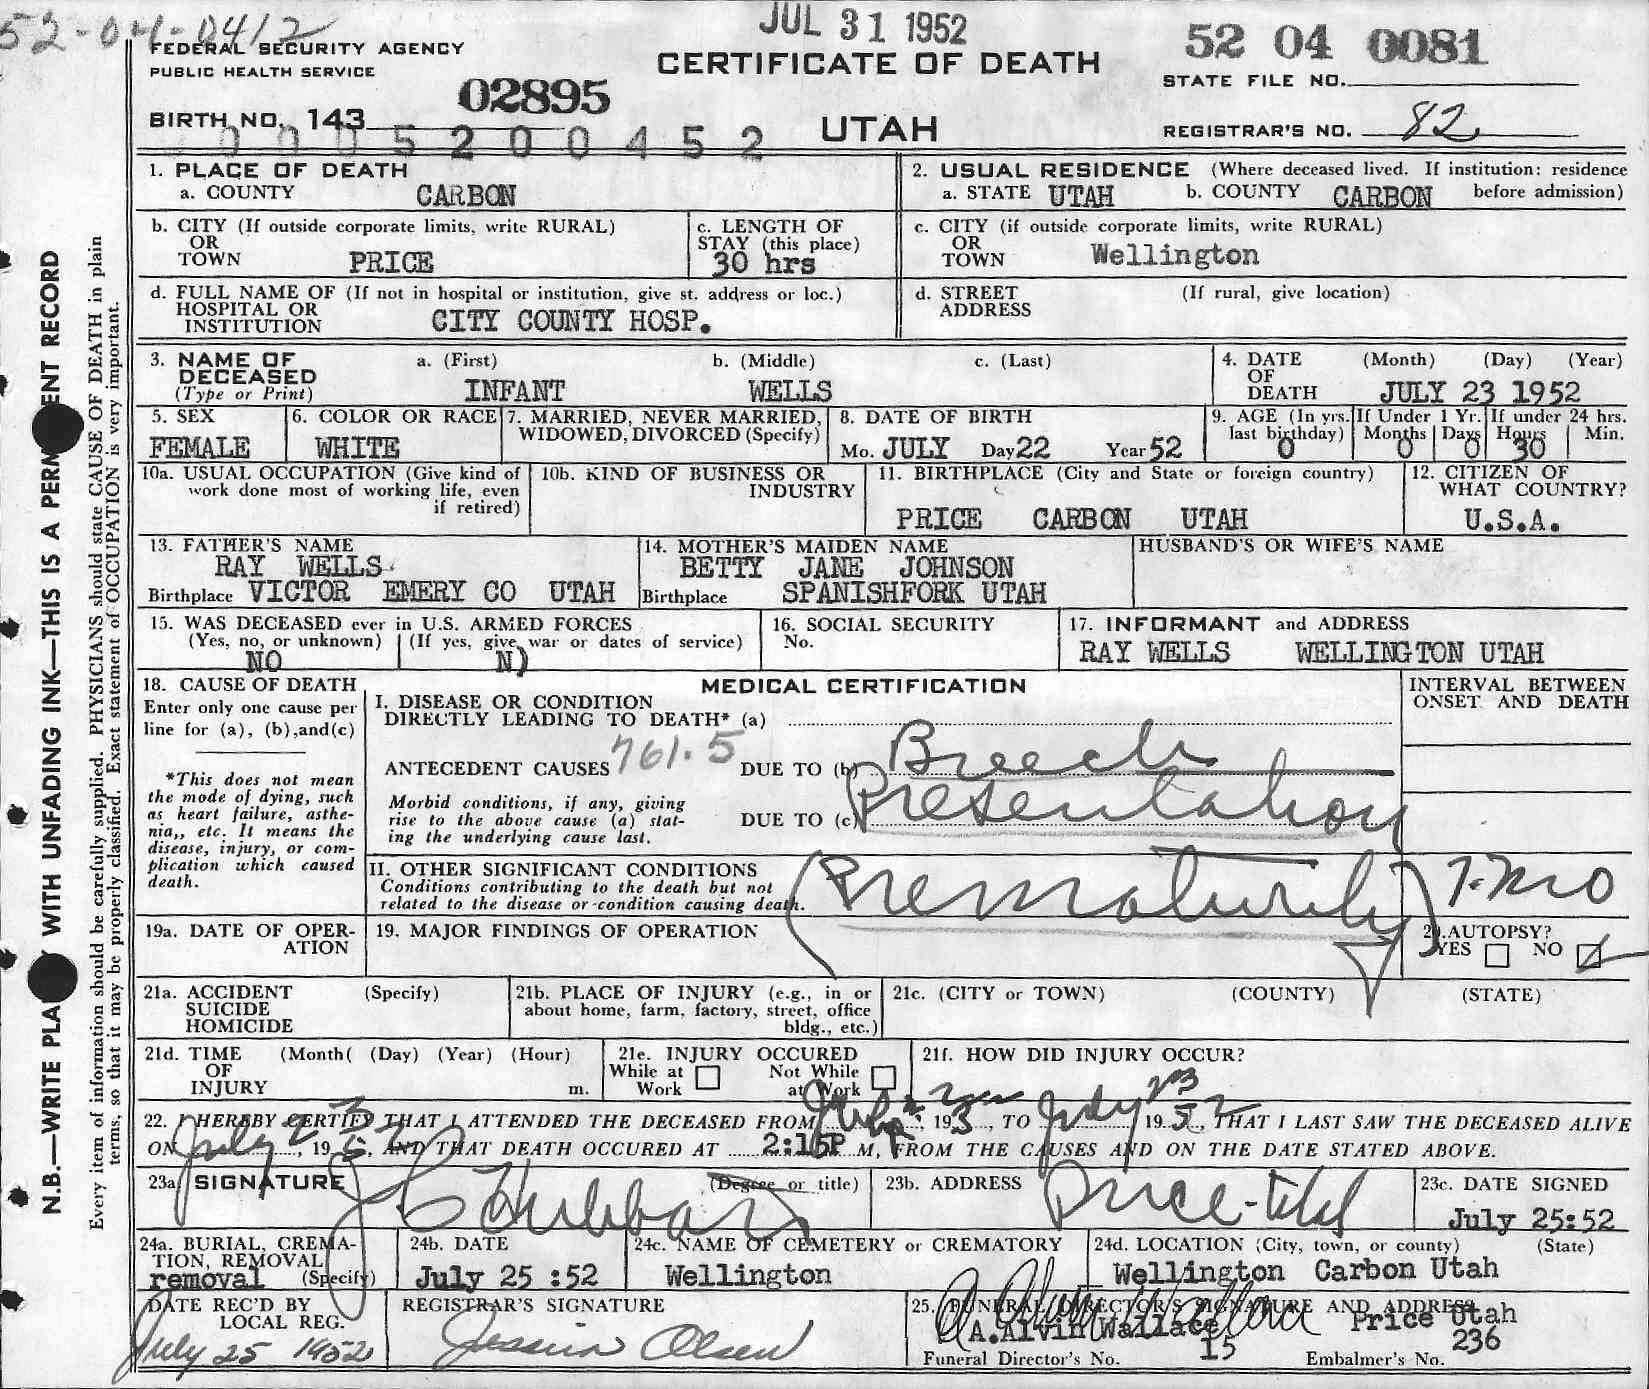 52-04-0412
JUL 31 1952
FEDERAL SECURITY AGENCY
PUBLIC HEALTH SERVICE
CERTIFICATE OF DEATH
52 04 0081
STATE FILE NO.
02895
BIRTH NO. 143
000520 0452
UTAH
REGISTRAR'S NO. 82
N.B.—WRITE PLA WITH UNFADING INK—THIS IS A PERM ENT RECORD
Every item of information should be carefully supplied. PHYSICIANS should state CAUSE OF DEATH in plain
terms, so that it may be properly classified. Exact statement of OCCUPATION is very important.
1. PLACE OF DEATH
a. COUNTY CARBON
2. USUAL RESIDENCE (Where deceased lived. If institution: residence
a. STATE UTAH b. COUNTY CARBON before admission)
b. CITY (If outside corporate limits, write RURAL)
OR
TOWN PRICE
c. LENGTH OF
STAY (this place)
30 hrs
c. CITY (if outside corporate limits, write RURAL)
OR
TOWN Wellington
d. FULL NAME OF (If not in hospital or institution, give st. address or loc.)
HOSPITAL OR
INSTITUTION CITY COUNTY HOSP.
d. STREET (If rural, give location)
ADDRESS
3. NAME OF a. (First) b. (Middle) c. (Last)
DECEASED
(Type or Print) INFANT WELLS
4. DATE (Month) (Day) (Year)
OF
DEATH JULY 23 1952
5. SEX
FEMALE
6. COLOR OR RACE
WHITE
7. MARRIED, NEVER MARRIED,
WIDOWED, DIVORCED (Specify)
8. DATE OF BIRTH
Mo. JULY Day 22 Year 52
9. AGE (In yrs. If Under 1 Yr. If under 24 hrs.
last birthday) Months Days Hours Min.
0 0 0 30
10a. USUAL OCCUPATION (Give kind of
work done most of working life, even
if retired)
10b. KIND OF BUSINESS OR
INDUSTRY
11. BIRTHPLACE (City and State or foreign country)
PRICE CARBON UTAH
12. CITIZEN OF
WHAT COUNTRY?
U.S.A.
13. FATHER'S NAME
RAY WELLS
Birthplace VICTOR EMERY CO UTAH
14. MOTHER'S MAIDEN NAME
BETTY JANE JOHNSON
Birthplace SPANISHFORK UTAH
HUSBAND'S OR WIFE'S NAME
15. WAS DECEASED ever in U.S. ARMED FORCES
(Yes, no, or unknown) (If yes, give war or dates of service)
NO N)
16. SOCIAL SECURITY
No.
17. INFORMANT and ADDRESS
RAY WELLS WELLINGTON UTAH
18. CAUSE OF DEATH
Enter only one cause per
line for (a), (b),and(c)
*This does not mean
the mode of dying, such
as heart failure, asthe-
nia,, etc. It means the
disease, injury, or com-
plication which caused
death.
MEDICAL CERTIFICATION
I. DISEASE OR CONDITION
DIRECTLY LEADING TO DEATH* (a)
ANTECEDENT CAUSES 761.5 DUE TO (b) Breech
Morbid conditions, if any, giving
rise to the above cause (a) stat-
ing the underlying cause last.
DUE TO (c) Presentation
INTERVAL BETWEEN
ONSET AND DEATH
II. OTHER SIGNIFICANT CONDITIONS
Conditions contributing to the death but not
related to the disease or condition causing death.
Prematurity 7-mo
19a. DATE OF OPER-
ATION
19. MAJOR FINDINGS OF OPERATION
20. AUTOPSY?
YES NO
21a. ACCIDENT (Specify)
SUICIDE
HOMICIDE
21b. PLACE OF INJURY (e.g., in or
about home, farm, factory, street, office
bldg., etc.)
21c. (CITY or TOWN) (COUNTY) (STATE)
21d. TIME (Month( (Day) (Year) (Hour)
OF
INJURY m.
21e. INJURY OCCURED
While at Not While
Work at Work
21f. HOW DID INJURY OCCUR?
22. I HEREBY CERTIFY THAT I ATTENDED THE DECEASED FROM July, 19 TO July 23 1952, THAT I LAST SAW THE DECEASED ALIVE
ON July 23, 1952, AND THAT DEATH OCCURED AT 2:15P M, FROM THE CAUSES AND ON THE DATE STATED ABOVE.
23a. SIGNATURE (Degree or title)
J C Hubbard
23b. ADDRESS
Price-Utah
23c. DATE SIGNED
July 25:52
24a. BURIAL, CREMA-
TION, REMOVAL
removal (Specify)
24b. DATE
July 25 :52
24c. NAME OF CEMETERY or CREMATORY
Wellington
24d. LOCATION (City, town, or county) (State)
Wellington Carbon Utah
DATE REC'D BY
LOCAL REG.
July 25 1952
REGISTRAR'S SIGNATURE
Jessica Olsen
25. FUNERAL DIRECTOR'S SIGNATURE AND ADDRESS
A. Alvin Wallace Price Utah
15 236
Funeral Director's No. Embalmer's No.